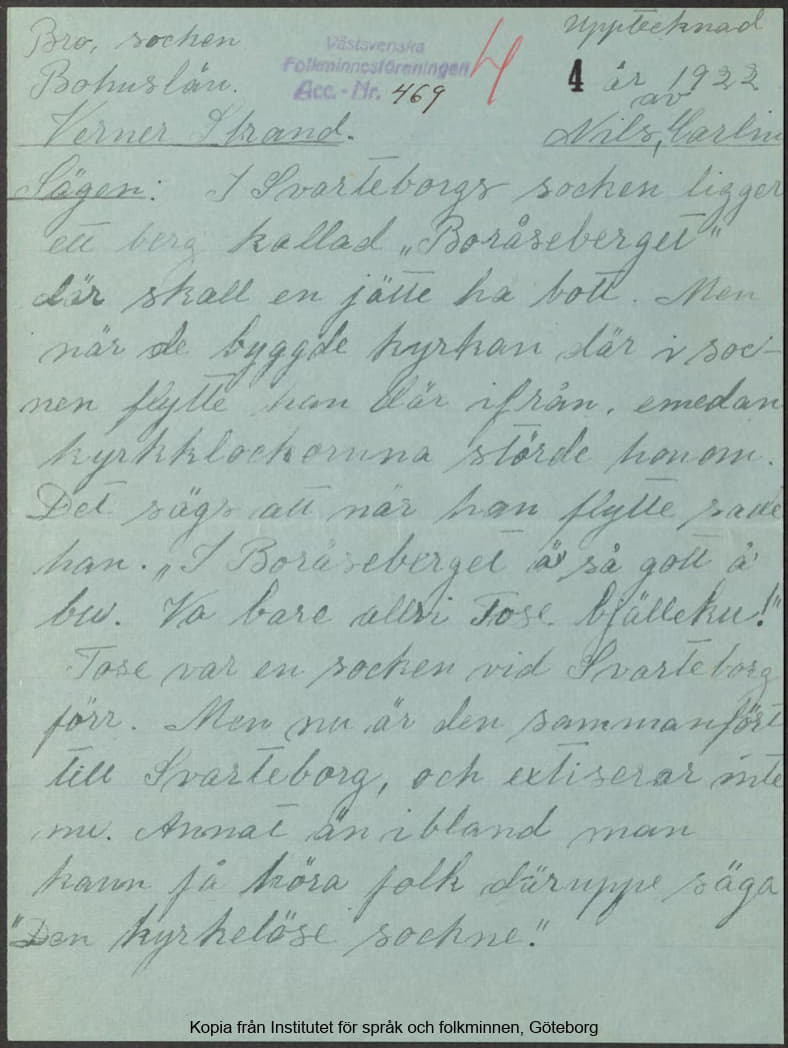 Bro, socken
Bohuslän.
Verner Strand.
Västsvenska
Folkminnesföreningen
Acc.-Nr. 469
4
Upptecknad
4 år 1922
av
Nils, Carlin
Sägen: I Svarteborgs socken ligger
ett berg kallad „Boråseberget"
där skall en jätte ha bott. Men
när de byggde kyrkan där i soc-
nen flytte han där ifrån, emedan
kyrkklockorna störde honom.
Det sägs att när han flytte sade
han. „I Boråseberget ä' så gott å'
bu. Va bare allri Tose bjälleku!"
Tose var en socken vid Svarteborg
förr. Men nu är den sammanfört
till Svarteborg, och extiserar inte
nu. Annat än ibland man
kann få höra folk däruppe säga
"Den kyrkelöse sockne."
Kopia från Institutet för språk och folkminnen, Göteborg